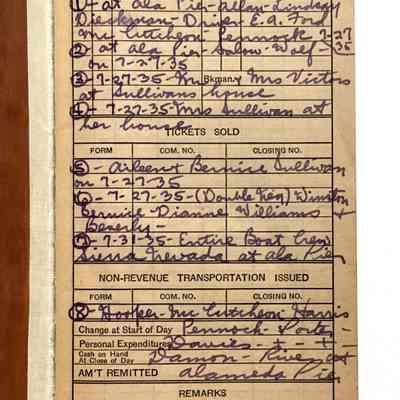 ① - at Ala Pier - Allan - Lindsay
Dieckman - Driver E.A. Ford
Mc Cutcheon - Pennock 7-27
② - at Ala Pier - Salow - Wolf - 35
on 7-27-35
③ 7-27-35 - Mr Bkman, Mrs Victors
at Sullivans house
④ - 7-27-35 - Mrs Sullivan at
her house
TICKETS SOLD
FORM COM. NO. CLOSING NO.
⑤ - Arleen & Bernice Sullivan
on 7-27-35
⑥ - 7-27-35 - (Double Neg) Winston
Bernice - Dianne Williams +
Beverly -
⑦ - 7-31-35 - Entire Boat Crew
Sierra Nevada at Ala Pier
NON-REVENUE TRANSPORTATION ISSUED
FORM COM. NO. CLOSING NO.
⑧ - Hooper - Mc Cutcheon - Harris
Change at Start of Day Pennock - Porter -
Personal Expenditures Davies - + - +
Cash on Hand
At Close of Day Damon - River at
AM'T REMITTED Alameda Pier
REMARKS